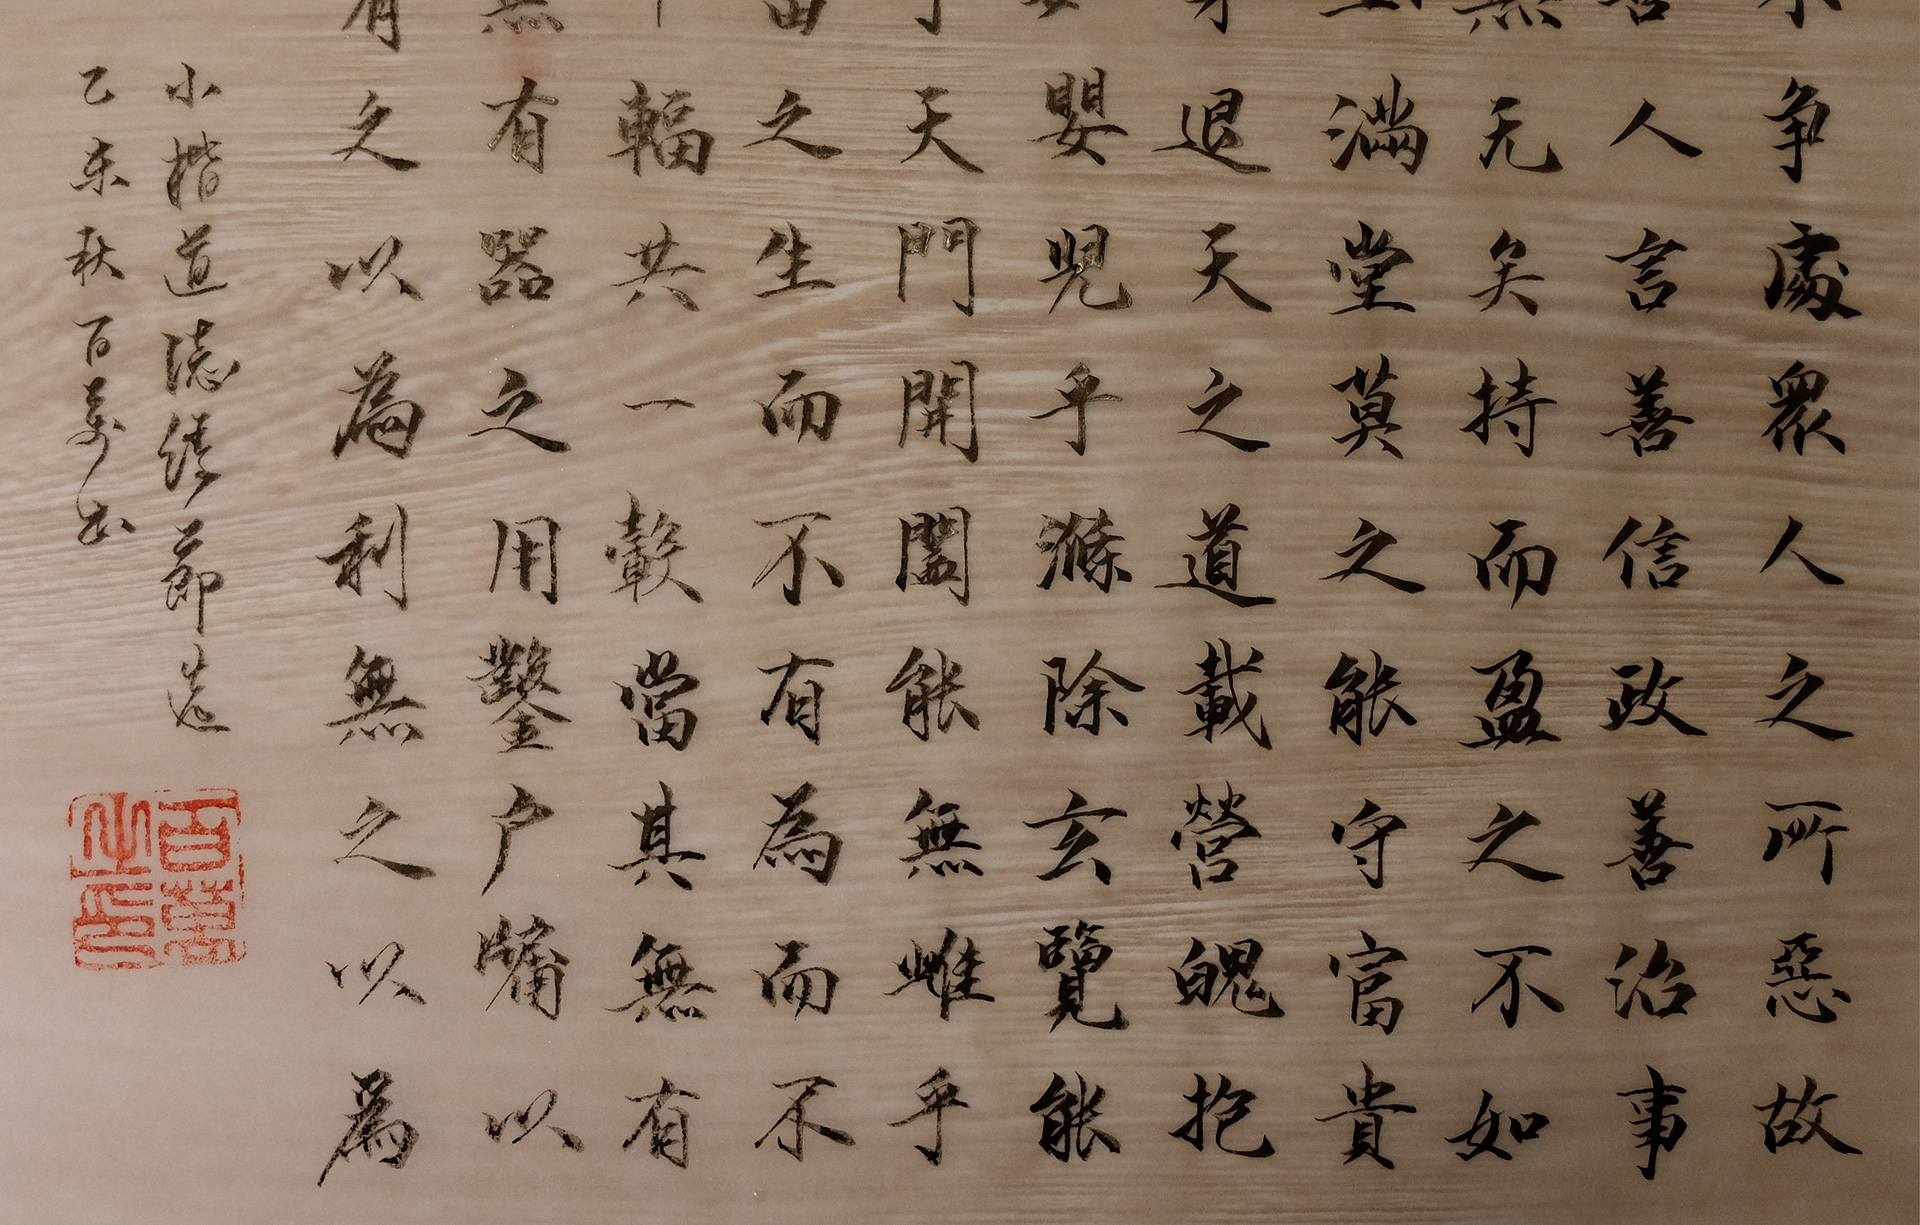 不争處衆人之所惡故
善人言善信政善治事
無无矣持而盈之不如
滿堂莫之能守富貴
身退天之道載營魄抱
嬰兒乎滌除玄覽能
乎天門開闔能無雌乎
畜之生而不有為而不
十輻共一轂當其無有
無有器之用鑿户牖以
有之以為利無之以為
小楷道德經節選
乙未秋百萬书
百萬之印